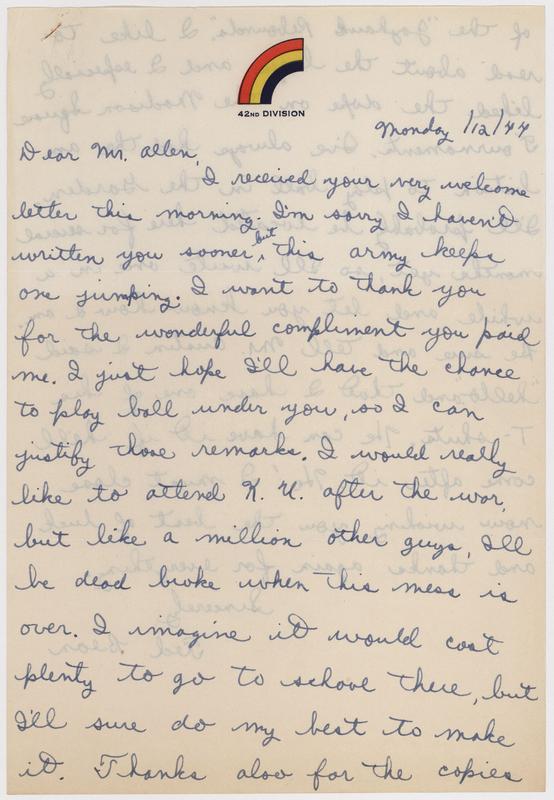 42ND DIVISION
Monday 1/12/44
Dear Mr. Allen,
I received your very welcome
letter this morning. I'm sorry I haven't
written you sooner, but this army keeps
one jumping. I want to thank you
for the wonderful compliment you paid
me. I just hope I'll have the chance
to play ball under you, so I can
justify those remarks. I would really
like to attend K. U. after the war,
but like a million other guys, I'll
be dead broke when this mess is
over. I imagine it would cost
plenty to go to school there, but
I'll sure do my best to make
it. Thanks also for the copies